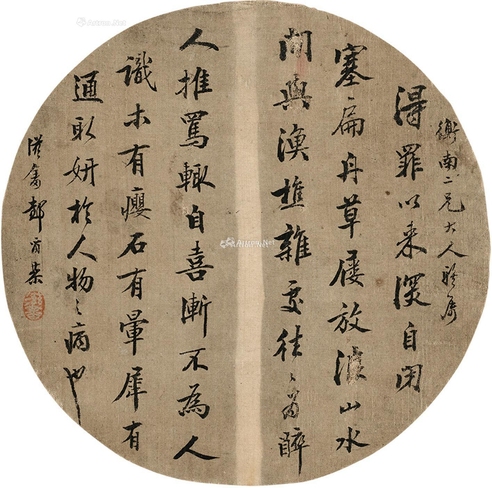 衡南二兄大人雅属
得罪以来深自閉
塞扁舟草屨放浪山水
間與漁樵雜處往〻為醉
人推罵輙自喜漸不為人
識木有癭石有暈犀有
通取妍於人物之病也